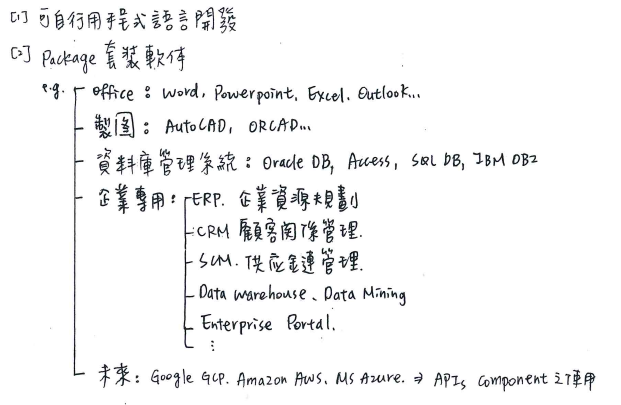 [1] 可自行用程式語言開發
[2] Package 套裝軟体
e.g. office : word, Powerpoint, Excel, Outlook...
製図 : AutoCAD, ORCAD...
資料庫管理系統 : Oracle DB, Access, SQL DB, IBM DB2
企業專用 : ERP. 企業資源規劃
CRM 顧客関係管理.
SCM. 供应鏈管理.
Data warehouse、Data Mining
Enterprise Portal.
⋮
未來 : Google GCP. Amazon AWS. MS Azure. ⇒ APIs, component 之使用